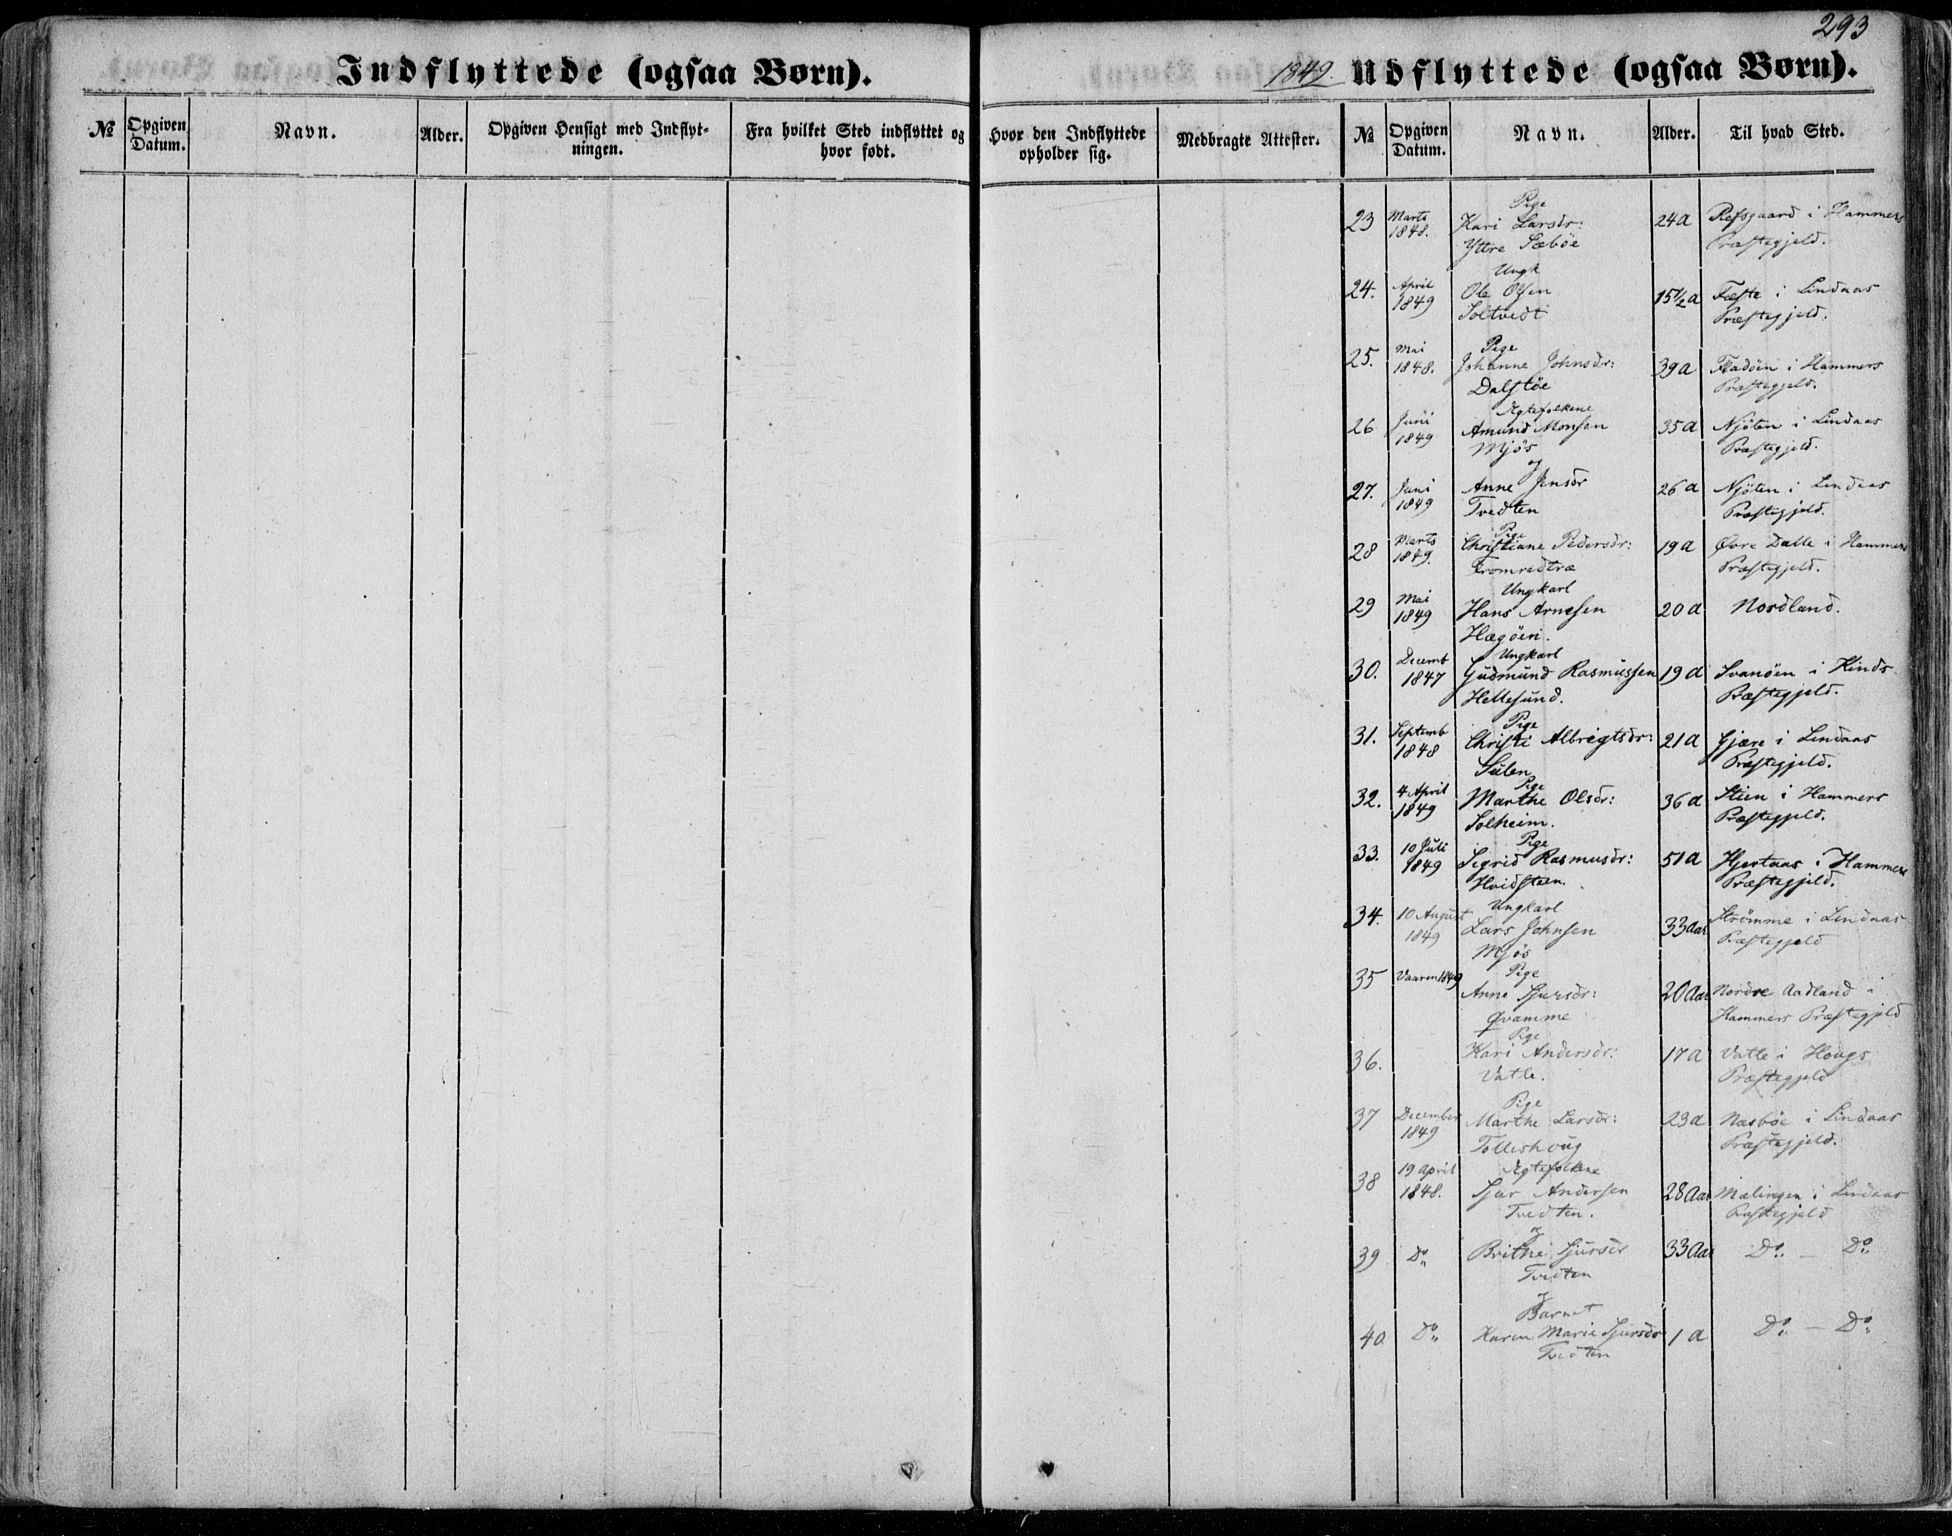 293
Indflyttede (ogsaa Børn).
1849. Udflyttede (ogsaa Børn).
№ Opgiven Datum. Navn. Alder. Opgiven Hensigt med Indflytningen. Fra hvilket Sted indflyttet og hvor født. Hvor den Indflyttede opholder sig. Medbragte Attester. № Opgiven Datum. Navn. Alder. Til hvad Sted.
Pige
23 Marts 1848. Kari Larsdr: 24a Refsgaard i Hammers
Yttre Sæbøe Præstegjeld.
Ungk
24. April 1849 Ole Olsen 15½a Fæste i Lindaas
Soltvedt Præstegjeld.
Pige
25. Mai 1848. Johanne Johnsdr: 39a Fladøen i Hammers
Dalstøe Præstegjeld.
Ægtefolkene
26 Juni 1849 Amund Monsen 35a Njøten i Lindaas
Mjøs Præstegjeld.
og
27. Juni 1849 Anne Jensdr 26a Njøten i Lindaas
Tvedten Præstegjeld.
Pige
28 Marts 1849. Christiane Pedersdr: 19a Øvre Dalle i Hammers
Fromredtræ Præstegjeld.
Ungkarl
29 Mai 1849 Hans Arnesen 20a Nordland.
Hægøen.
Ungkarl
30. Decemb 1847 Gudmund Rasmussen 19a Svanøen i Kinds
Hellesund. Præstegjeld.
Pige
31. Septemb 1848 Christi Albregtsdr: 21a Gjære i Lindaas
Sulen Præstegjeld.
Pige
32. 4 April 1849 Marthe Olsdr: 36a Steen i Hammers
Solheim. Præstegjeld.
Pige
33. 10 Juli 1849 Sigrid Rasmusdr: 51a Hjertaas i Hammers
Hvidsteen. Præstegjeld.
Ungkarl
34. 10 August 1849 Lars Johnsen 33 Aar Strømme i Lindaas
Mjøs Præstegjeld
Pige
35 Vaaren 1849 Anne Sjursdr: 20 Aar Nordre Aadland i
Qvamme Hammers Præstegjeld
Pige
36. Kari Andersdr: 17a Vatle i Hougs
Vatle. Præstegjeld
Pige
37 December 1849 Marthe Larsdr: 23a Næsbøe i Lindaas
Tolleshoug Præstegjeld.
Ægtefolkene
38 19 April 1848. Sjur Andersen 28 Aar Mælingen i Lindaas
Tvedten. Præstegjeld
og
39 Do Brithe Sjursdr 33 Aar Do — Do
Tvedten
og
Barnet
40 Do Karen Marie Sjursdr 1a Do — Do
Tvedten